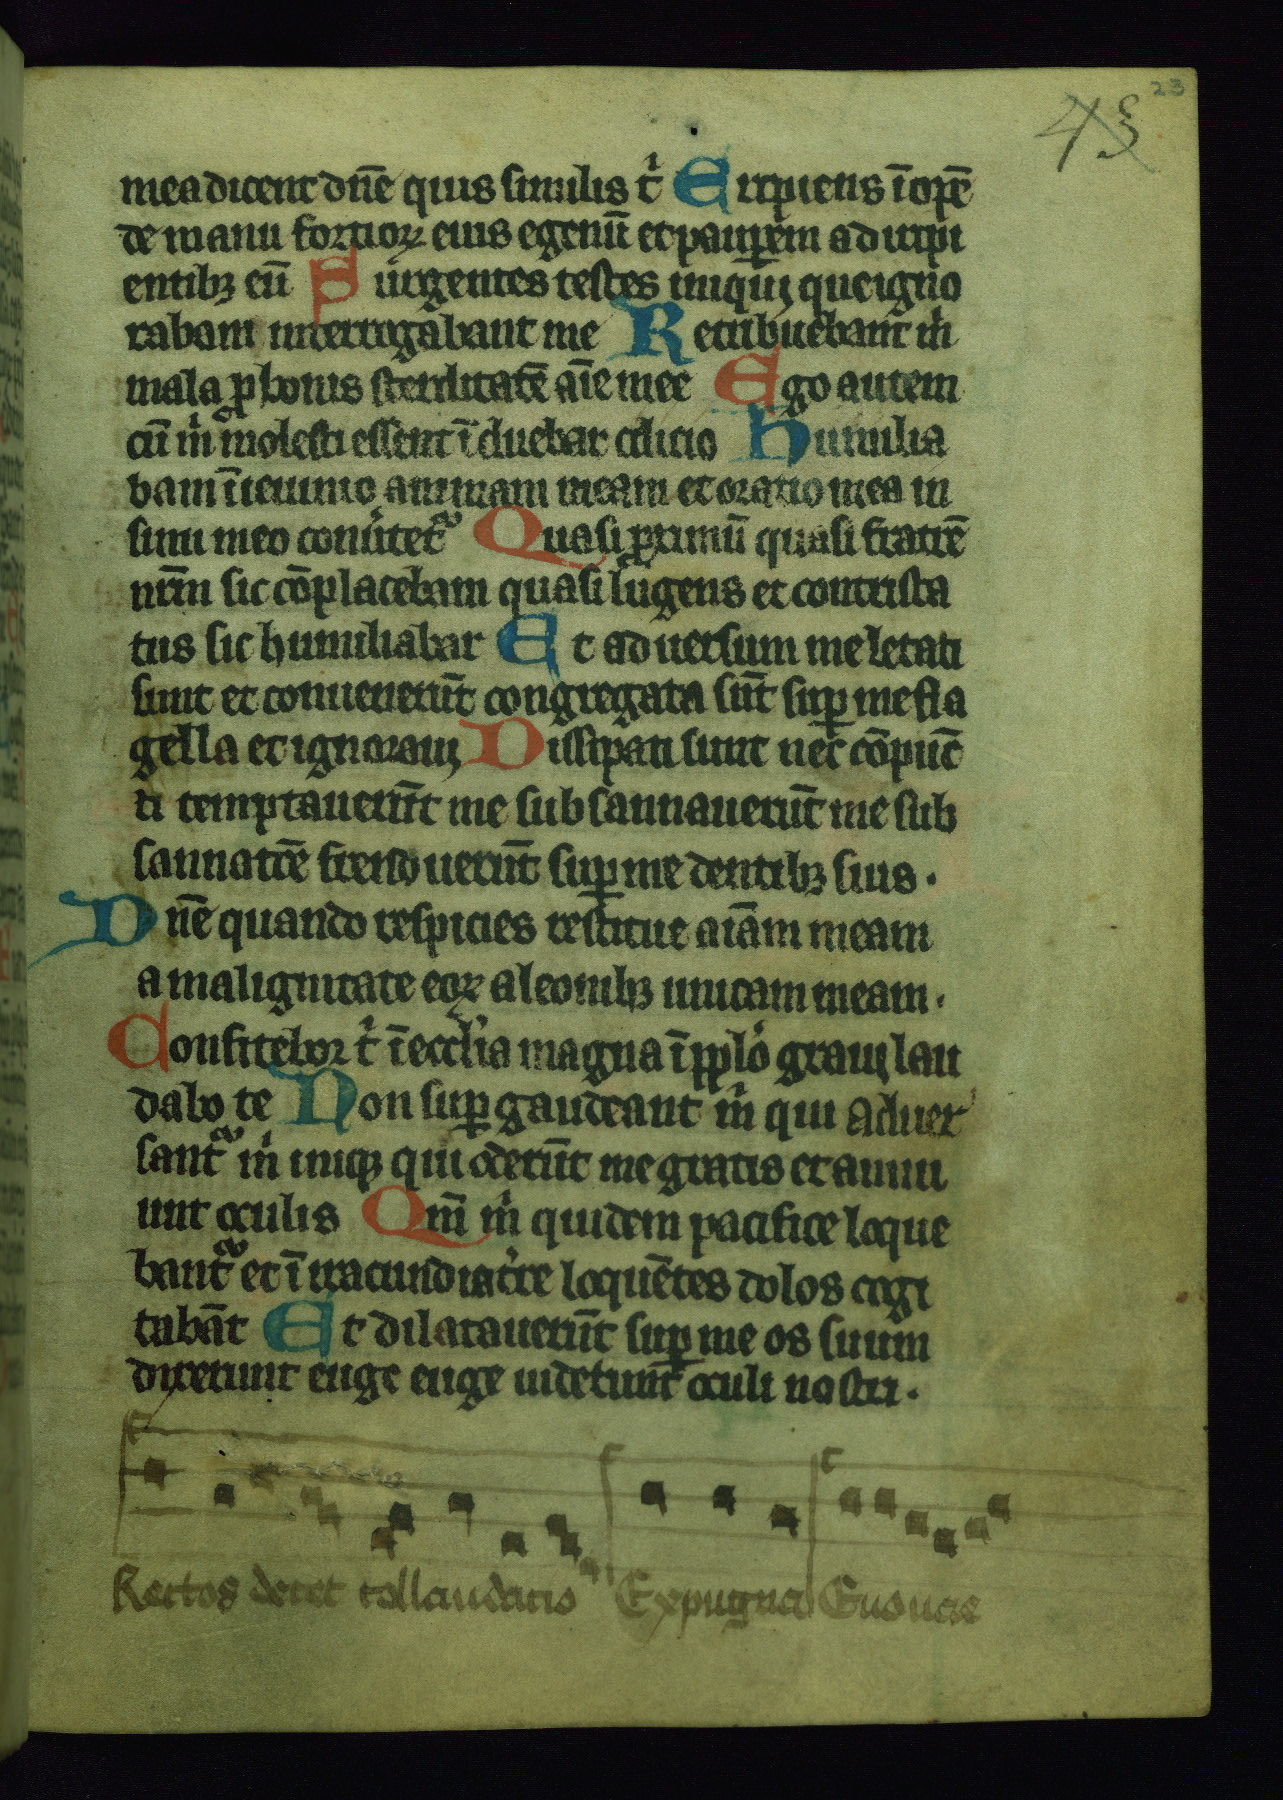 23
43
mea dicent dn̄e quis similis t̾ Eripiens īopē
de manu fortioꝝ eius egenū et paup̱em a diripi
entibꝫ eū Surgentes testes iniqui que igno
rabam interrogabant me Retribuebant m̾
mala ꝓ bonis sterilitatē aīe mee Ego autem
cū m̾ molesti essent īduebar cilicio Humilia
bam ī ieiunio animam meam et oratio mea in
sinu meo conu̾tet᷑ Quasi ꝓximū quasi fratrē
nr̄m sic cōplacebam quasi lugens et contrista
tus sic humiliabar Et aduersum me letati
sunt et conuenerūt congregata sūt suꝑ me fla
gella et ignoraui Dissipati sunt nec cōpūc
ti temptauerūt me subsannauerūt me sub
sannatōe frenduerūt suꝑ me dentibꝫ suis ·
Dn̄e quando respicies restitue aīam meam
a malignitate eoꝝ a leonibꝫ unicam meam ·
Confitebor t̾ ī eccl̾ia magna ī ppl̾o graui lau
dabo te Non suꝑ gaudeant m̾ qui aduer
sant᷑ m̾ iniqꝫ qui oderūt me gratis et annu
unt oculis Qm̄ m̾ quidem pacifice loque
bant᷑ et ī iracundia tr̄e loquētes dolos cogi
tabāt Et dilatauerūt suꝑ me os suum
dixerunt euge euge uiderunt oculi nostri ·
Rectos decet collaudatio Expugna Euouae